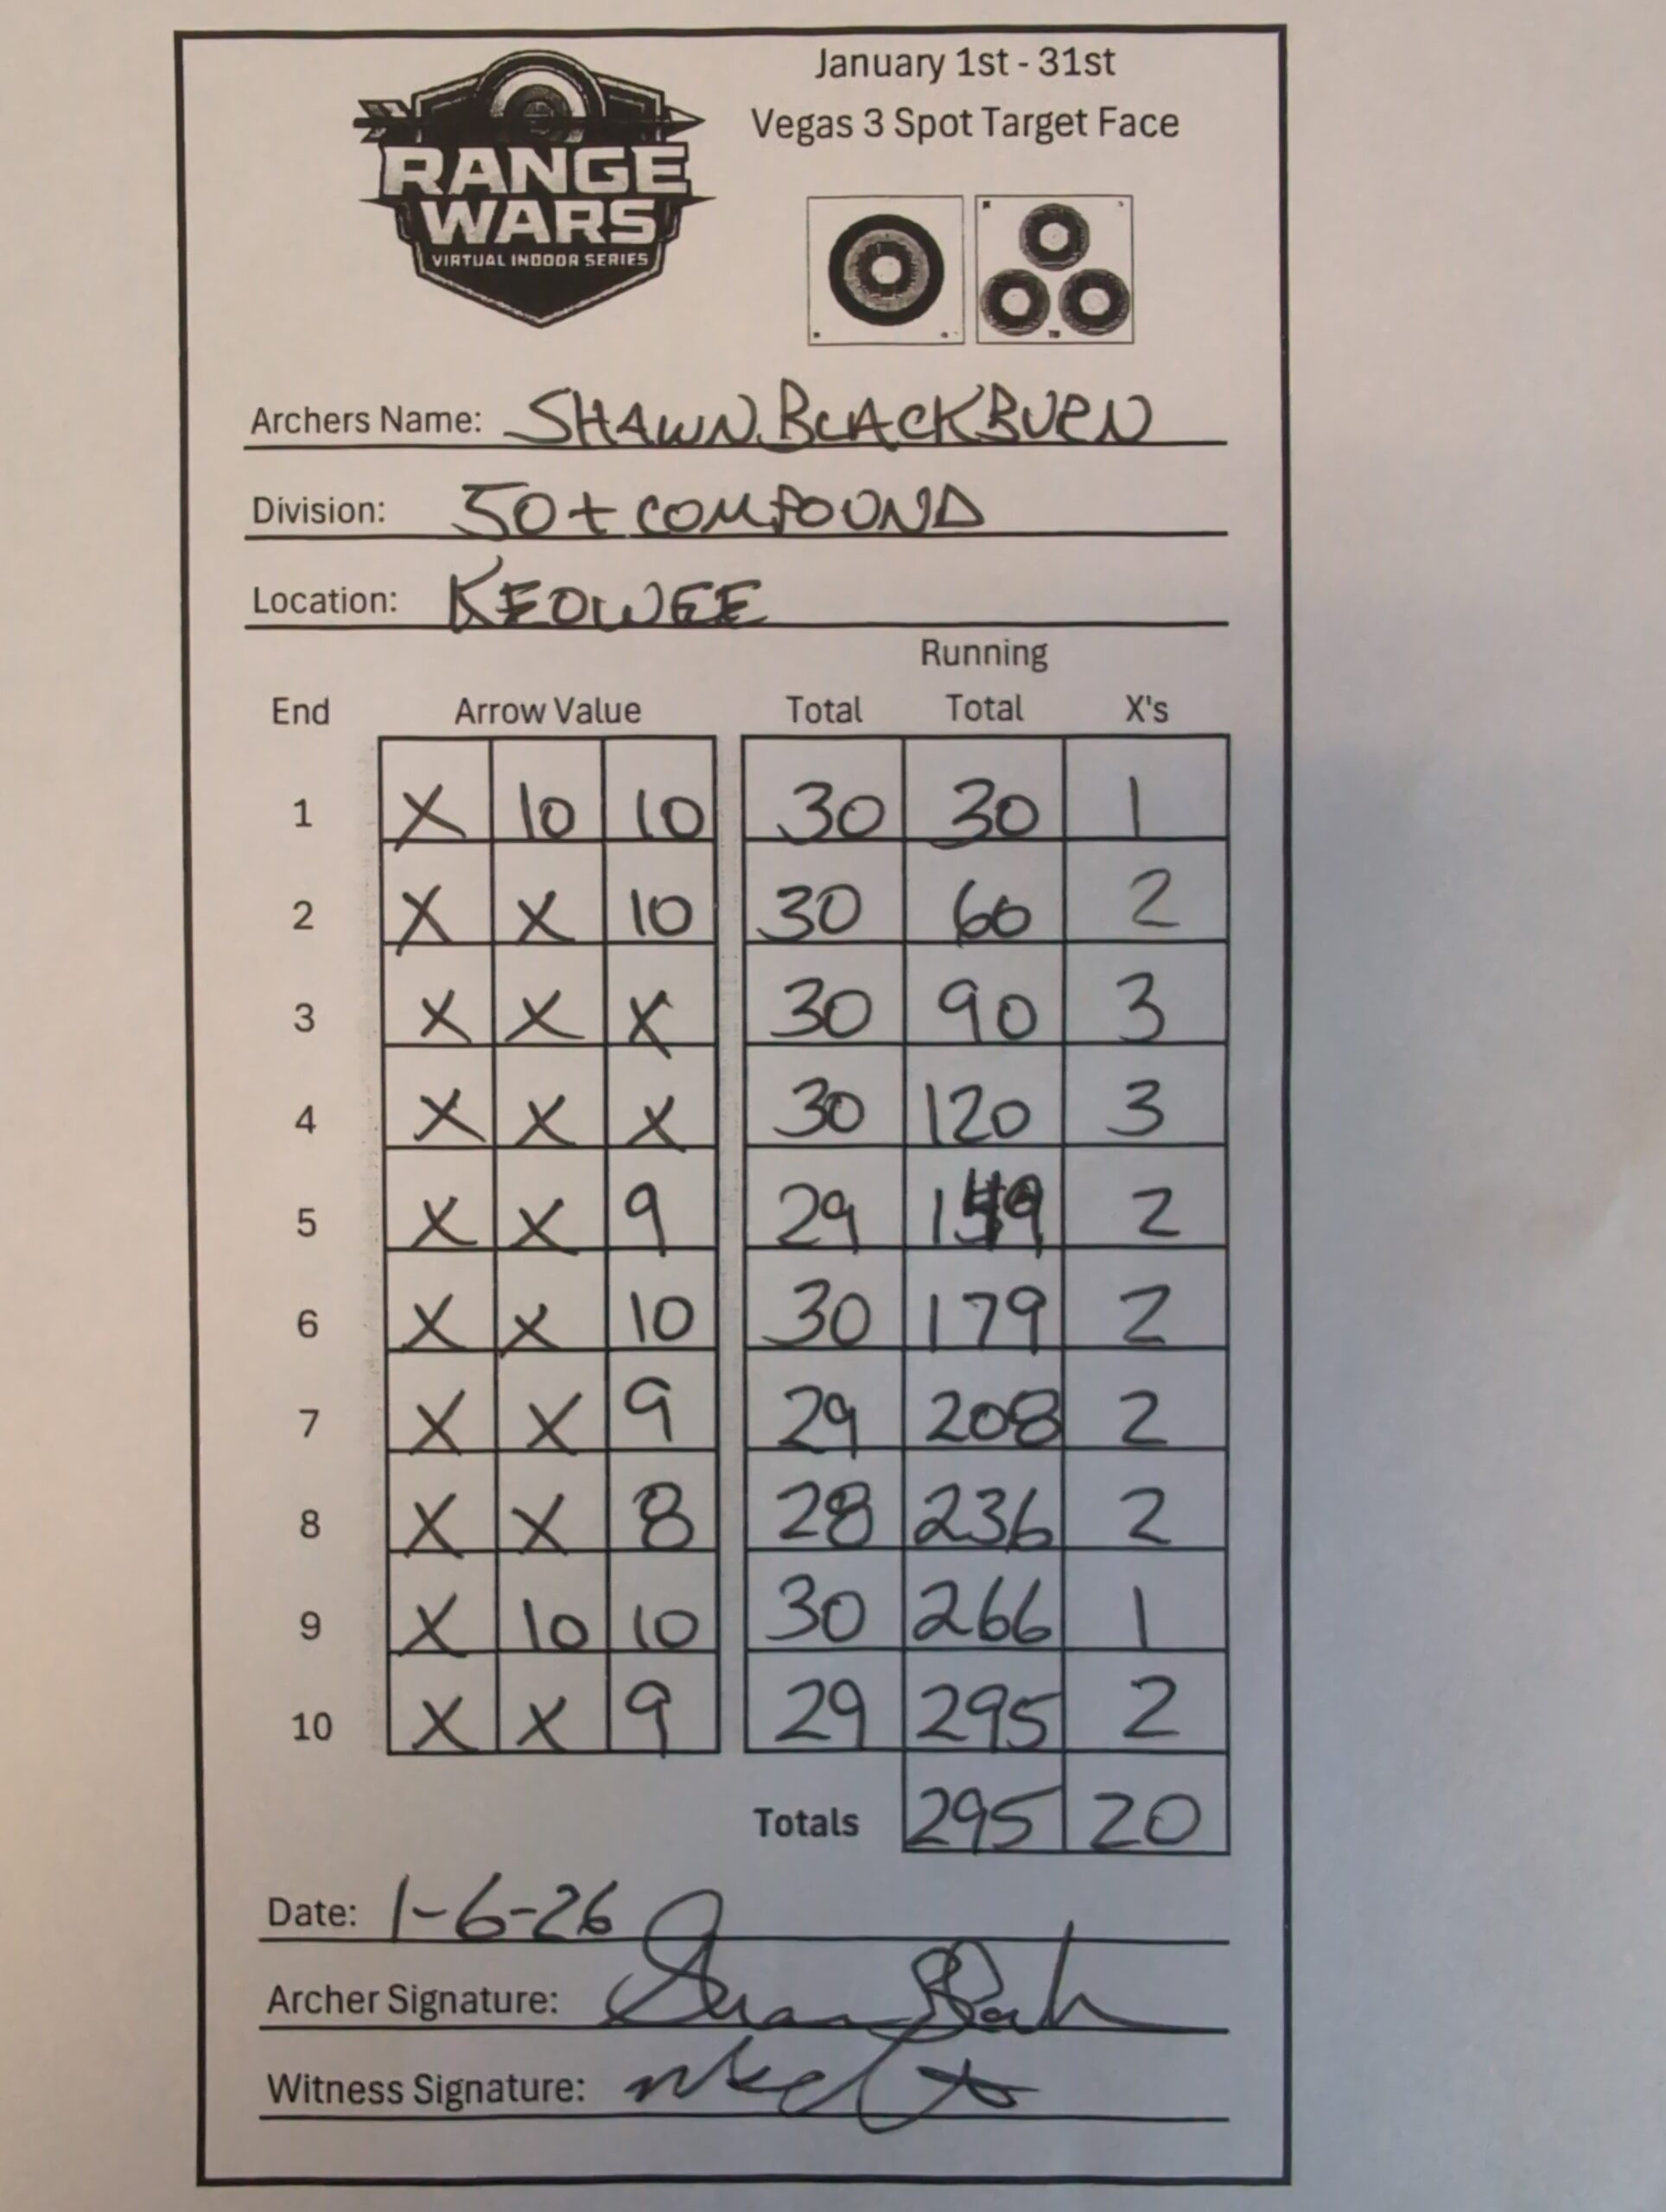 RANGE
WARS
VIRTUAL INDOOR SERIES
January 1st - 31st
Vegas 3 Spot Target Face
Archers Name: SHAWN BLACKBURN
Division: 50+ COMPOUND
Location: KEOWEE
End Arrow Value Total Running Total X's
1 X 10 10 30 30 1
2 X X 10 30 60 2
3 X X X 30 90 3
4 X X X 30 120 3
5 X X 9 29 149 2
6 X X 10 30 179 2
7 X X 9 29 208 2
8 X X 8 28 236 2
9 X 10 10 30 266 1
10 X X 9 29 295 2
Totals 295 20
Date: 1-6-26
Archer Signature:
Witness Signature: